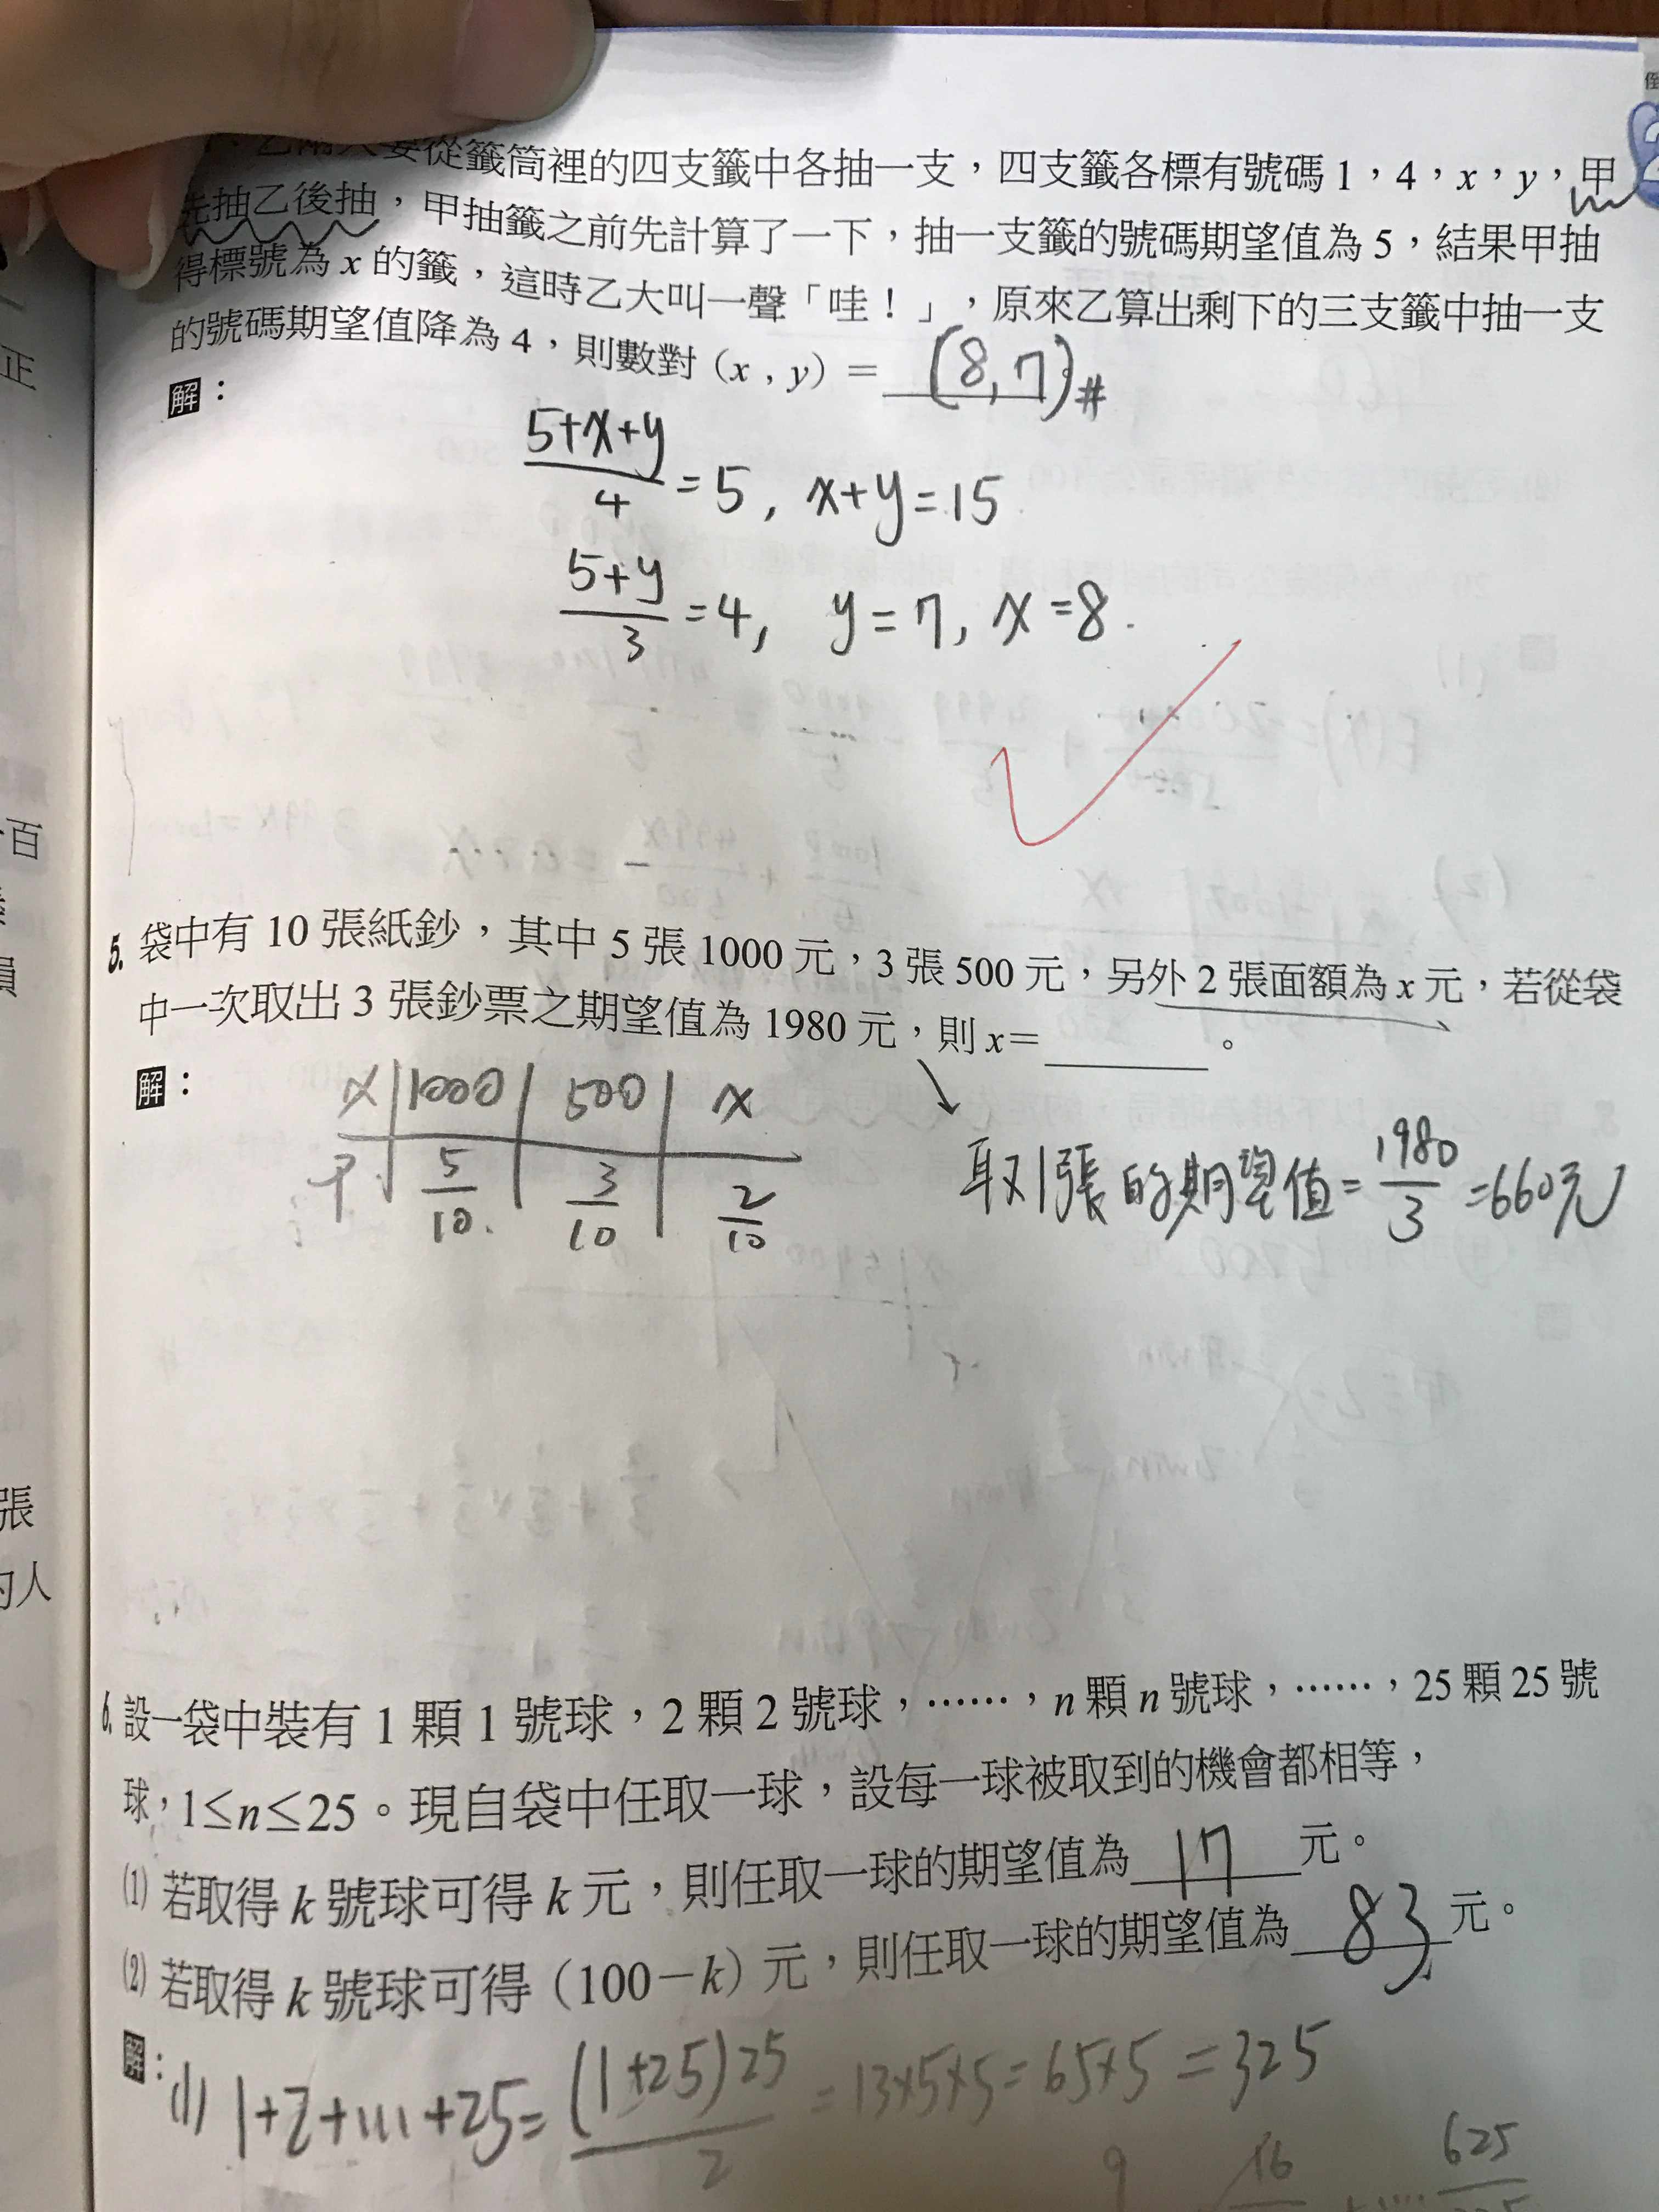 乙兩人要從籤筒裡的四支籤中各抽一支，四支籤各標有號碼1，4，x，y，甲
先抽乙後抽，甲抽籤之前先計算了一下，抽一支籤的號碼期望值為5，結果甲抽
得標號為x的籤，這時乙大叫一聲「哇！」，原來乙算出剩下的三支籤中抽一支
的號碼期望值降為4，則數對（x，y）＝ (8,7)#
解：
(5+x+y)/4 =5, x+y=15
(5+y)/3 =4, y=7, x=8.
5. 袋中有10張紙鈔，其中5張1000元，3張500元，另外2張面額為x元，若從袋
中一次取出3張鈔票之期望值為1980元，則x＝ 。
解：
x 1000 500 x
P 5/10 3/10 2/10
取1張的期望值=1980/3=660元
6. 設一袋中裝有1顆1號球，2顆2號球，……，n顆n號球，……，25顆25號
球，1≤n≤25。現自袋中任取一球，設每一球被取到的機會都相等，
(1) 若取得k號球可得k元，則任取一球的期望值為 17 元。
(2) 若取得k號球可得（100－k）元，則任取一球的期望值為 83 元。
解：
(1) 1+2+...+25=(1+25)25/2=13x5x5=65x5=325
正
百
員
張
的人